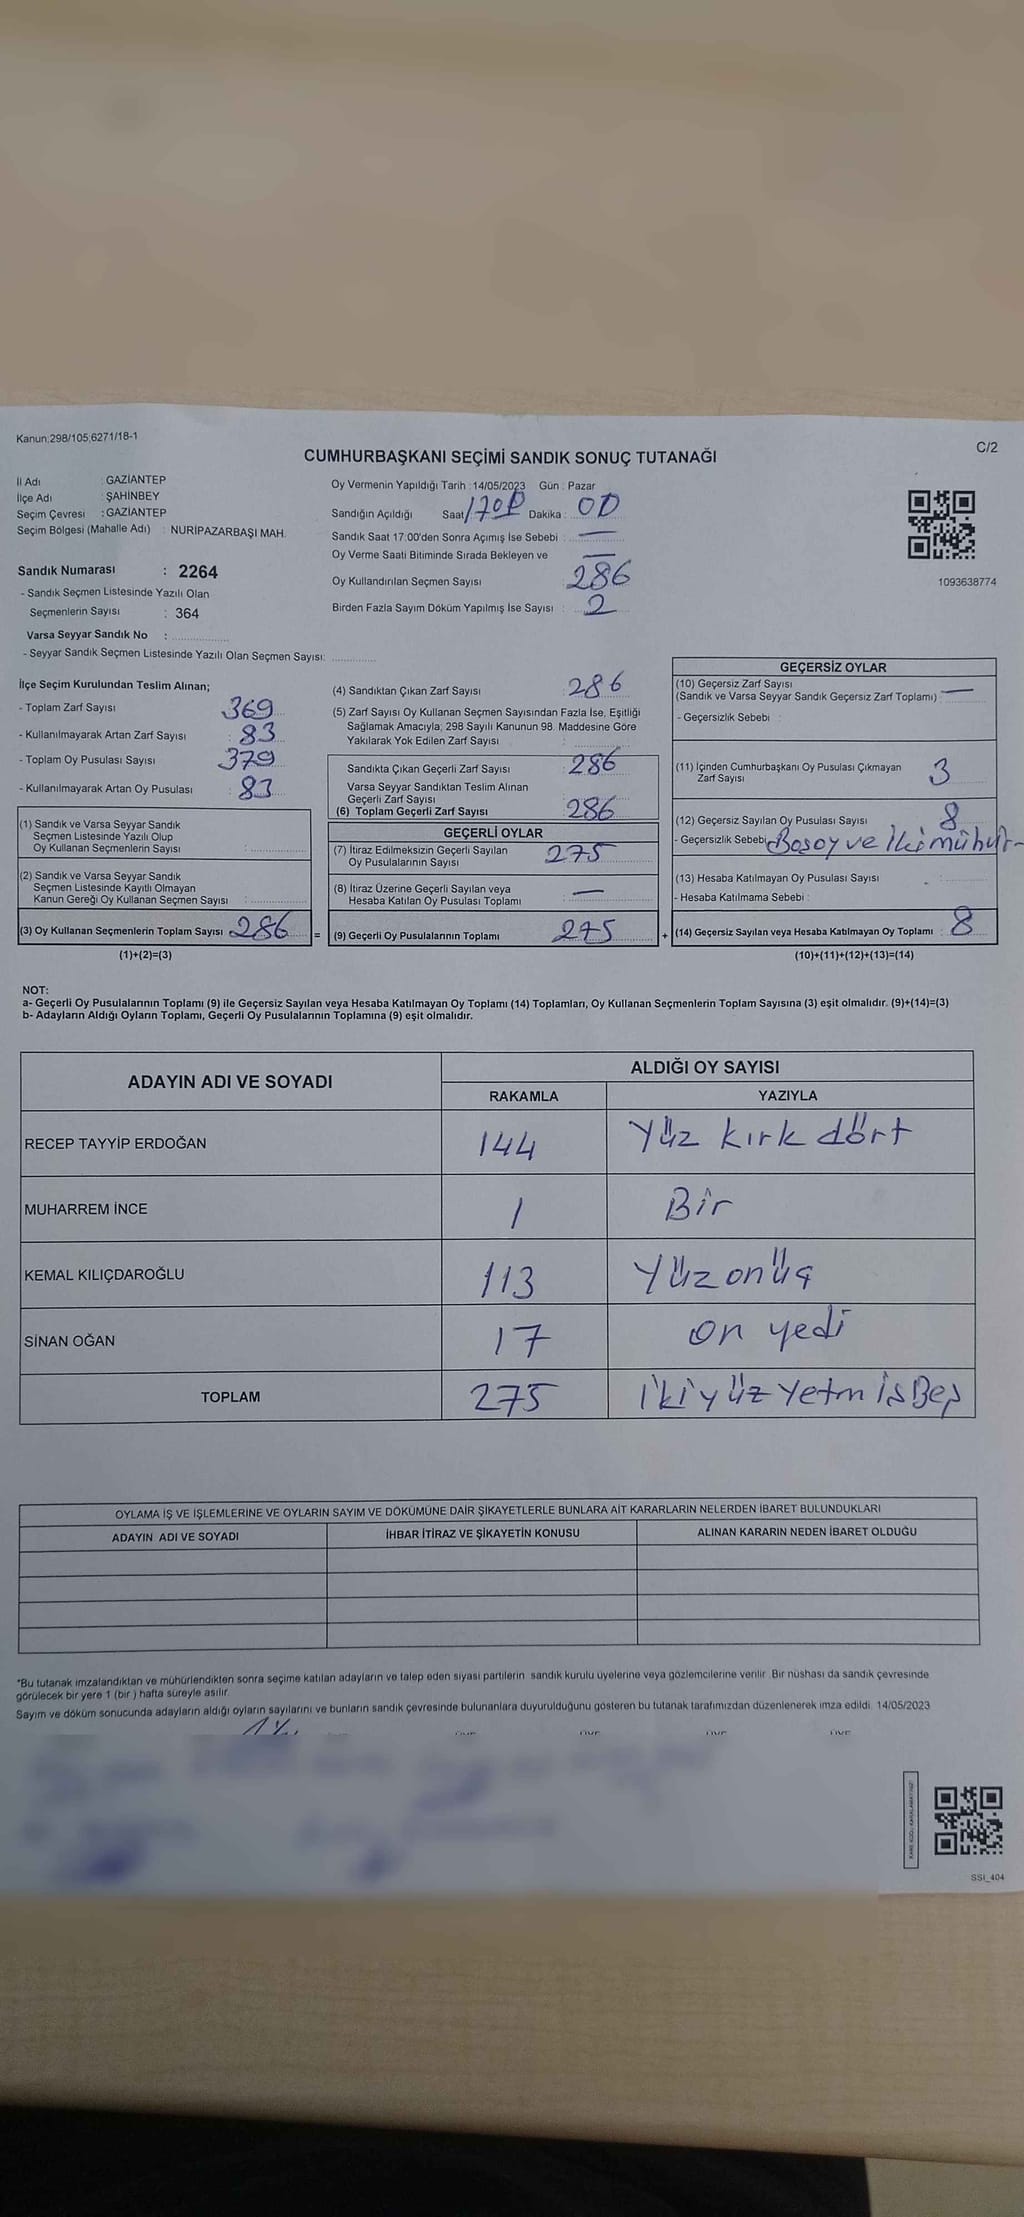 Kanun:298/105;6271/18-1
C/2
CUMHURBAŞKANI SEÇİMİ SANDIK SONUÇ TUTANAĞI
İl Adı : GAZİANTEP
İlçe Adı : ŞAHİNBEY
Seçim Çevresi : GAZİANTEP
Seçim Bölgesi (Mahalle Adı) : NURİPAZARBAŞI MAH.
Sandık Numarası : 2264
- Sandık Seçmen Listesinde Yazılı Olan
Seçmenlerin Sayısı : 364
Varsa Seyyar Sandık No :
- Seyyar Sandık Seçmen Listesinde Yazılı Olan Seçmen Sayısı:
Oy Vermenin Yapıldığı Tarih : 14/05/2023 Gün : Pazar
Sandığın Açıldığı Saat Dakika : 00
Sandık Saat 17:00'den Sonra Açımış İse Sebebi : —
Oy Verme Saati Bitiminde Sırada Bekleyen ve —
Oy Kullandırılan Seçmen Sayısı 286
Birden Fazla Sayım Döküm Yapılmış İse Sayısı : 2
1093638774
İlçe Seçim Kurulundan Teslim Alınan;
- Toplam Zarf Sayısı : 369
- Kullanılmayarak Artan Zarf Sayısı : 83
- Toplam Oy Pusulası Sayısı : 379
- Kullanılmayarak Artan Oy Pusulası : 83
(1) Sandık ve Varsa Seyyar Sandık
Seçmen Listesinde Yazılı Olup
Oy Kullanan Seçmenlerin Sayısı :
(2) Sandık ve Varsa Seyyar Sandık
Seçmen Listesinde Kayıtlı Olmayan
Kanun Gereği Oy Kullanan Seçmen Sayısı :
(3) Oy Kullanan Seçmenlerin Toplam Sayısı 286
(1)+(2)=(3)
(4) Sandıktan Çıkan Zarf Sayısı : 286
(5) Zarf Sayısı Oy Kullanan Seçmen Sayısından Fazla İse, Eşitliği
Sağlamak Amacıyla; 298 Sayılı Kanunun 98. Maddesine Göre
Yakılarak Yok Edilen Zarf Sayısı :
Sandıkta Çıkan Geçerli Zarf Sayısı : 286
Varsa Seyyar Sandıktan Teslim Alınan
Geçerli Zarf Sayısı :
(6) Toplam Geçerli Zarf Sayısı : 286
GEÇERLİ OYLAR
(7) İtiraz Edilmeksizin Geçerli Sayılan
Oy Pusulalarının Sayısı 275
(8) İtiraz Üzerine Geçerli Sayılan veya
Hesaba Katılan Oy Pusulası Toplamı —
= (9) Geçerli Oy Pusulalarının Toplamı 275
GEÇERSİZ OYLAR
(10) Geçersiz Zarf Sayısı
(Sandık ve Varsa Seyyar Sandık Geçersiz Zarf Toplamı) : —
- Geçersizlik Sebebi :
(11) İçinden Cumhurbaşkanı Oy Pusulası Çıkmayan
Zarf Sayısı 3
(12) Geçersiz Sayılan Oy Pusulası Sayısı 8
- Geçersizlik Sebebi: Bosoy ve İki mühür
(13) Hesaba Katılmayan Oy Pusulası Sayısı :
- Hesaba Katılmama Sebebi :
+ (14) Geçersiz Sayılan veya Hesaba Katılmayan Oy Toplamı : 8
(10)+(11)+(12)+(13)=(14)
NOT:
a- Geçerli Oy Pusulalarının Toplamı (9) ile Geçersiz Sayılan veya Hesaba Katılmayan Oy Toplamı (14) Toplamları, Oy Kullanan Seçmenlerin Toplam Sayısına (3) eşit olmalıdır. (9)+(14)=(3)
b- Adayların Aldığı Oyların Toplamı, Geçerli Oy Pusulalarının Toplamına (9) eşit olmalıdır.
ADAYIN ADI VE SOYADI ALDIĞI OY SAYISI
RAKAMLA YAZIYLA
RECEP TAYYİP ERDOĞAN 144 Yüz kırk dört
MUHARREM İNCE 1 Bir
KEMAL KILIÇDAROĞLU 113 Yüz onüç
SİNAN OĞAN 17 on yedi
TOPLAM 275 İkiyüz YetmisBeş
OYLAMA İŞ VE İŞLEMLERİNE VE OYLARIN SAYIM VE DÖKÜMÜNE DAİR ŞİKAYETLERLE BUNLARA AİT KARARLARIN NELERDEN İBARET BULUNDUKLARI
ADAYIN ADI VE SOYADI İHBAR İTİRAZ VE ŞİKAYETİN KONUSU ALINAN KARARIN NEDEN İBARET OLDUĞU
*Bu tutanak imzalandıktan ve mühürlendikten sonra seçime katılan adayların ve talep eden siyasi partilerin sandık kurulu üyelerine veya gözlemcilerine verilir. Bir nüshası da sandık çevresinde
görülecek bir yere 1 (bir ) hafta süreyle asılır.
Sayım ve döküm sonucunda adayların aldığı oyların sayılarını ve bunların sandık çevresinde bulunanlara duyurulduğunu gösteren bu tutanak tarafımızdan düzenlenerek imza edildi. 14/05/2023
SSI_404